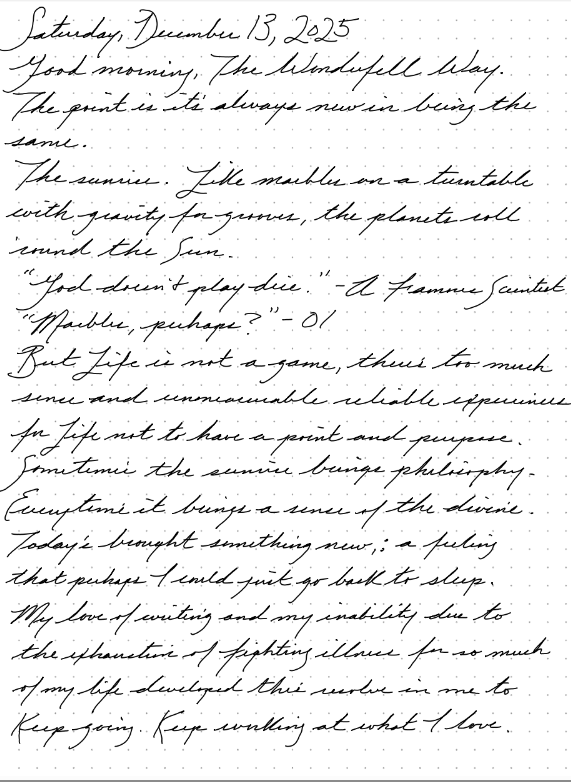 Saturday, December 13, 2025
Good morning, The Wondufell Way.
The point is it's always new in being the
same.
The sunrise. Like marbles on a turntable
with gravity for grooves, the planets roll
'round the Sun.
"God doesn't play dice." - A Famous Scientist
"Marbles, perhaps?" - 01
But Life is not a game, there's too much
sense and unmeasurable reliable experiences
for Life not to have a point and purpose.
Sometimes the sunrise brings philosophy.
Everytime it brings a sense of the divine.
Today's brought something new,; a feeling
that perhaps I could just go back to sleep.
My love of writing and my inability due to
the exhaustion of fighting illness for so much
of my life developed this resolve in me to
Keep going. Keep working at what I love.